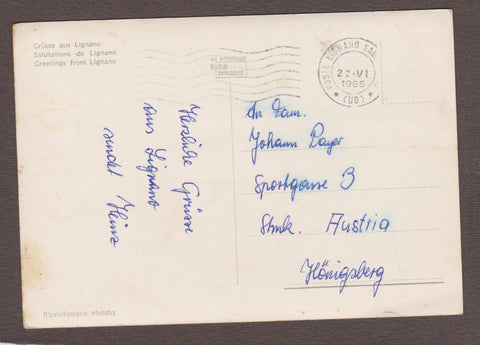 Grüsse aus Lignano
Salutations de Lignano
Greetings from Lignano
Kodak
POSTE LIGNANO SAB.
22-VI
1965
(UD)
Herzliche Grüsse
aus Lignano
sendet Heinz
An Fam.
Johann Payer
Sportgasse 3
Stmk. Austria
Hönigsberg
Riproduzione vietata